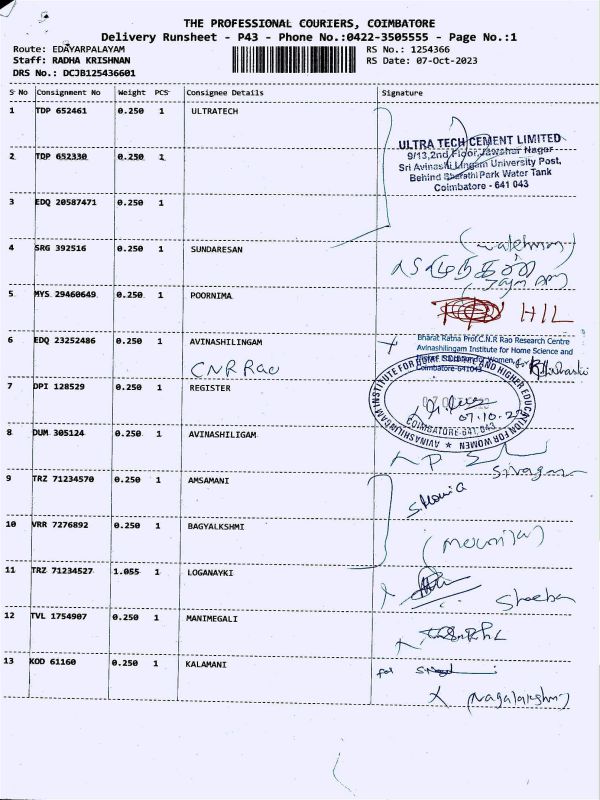 THE PROFESSIONAL COURIERS, COIMBATORE
Delivery Runsheet - P43 - Phone No.:0422-3505555 - Page No.:1
Route: EDAYARPALAYAM RS No.: 1254366
Staff: RADHA KRISHNAN RS Date: 07-Oct-2023
DRS No.: DCJB125436601
S No Consignment No Weight PCS Consignee Details Signature
1 TDP 652461 0.250 1 ULTRATECH
ULTRA TECH CEMENT LIMITED
9/13,2nd Floor, Jawahar Nagar
2 TDP 652330 0.250 1
Sri Avinashi Lingam University Post,
Behind Bharathi Park Water Tank
Coimbatore - 641 043
3 EDQ 20587471 0.250 1
4 SRG 392516 0.250 1 SUNDARESAN
(watchman)
5 MYS 29460649 0.250 1 POORNIMA
HIL
6 EDQ 23252486 0.250 1 AVINASHILINGAM
CNR Rao
Bharat Ratna Prof.C.N.R Rao Research Centre
Avinashilingam Institute for Home Science and
Coimbatore-641043
for
7 DPI 128529 0.250 1 REGISTER
AVINASHILINGAM INSTITUTE FOR HOME SCIENCE AND HIGHER EDUCATION FOR WOMEN
07.10.23
COIMBATORE-641 043
8 DUM 305124 0.250 1 AVINASHILIGAM
9 TRZ 71234570 0.250 1 AMSAMANI
10 VRR 7276892 0.250 1 BAGYALKSHMI
11 TRZ 71234527 1.055 1 LOGANAYKI
Sheeba
12 TVL 1754907 0.250 1 MANIMEGALI
13 KOD 61160 0.250 1 KALAMANI
for
(Nagalakshmi)